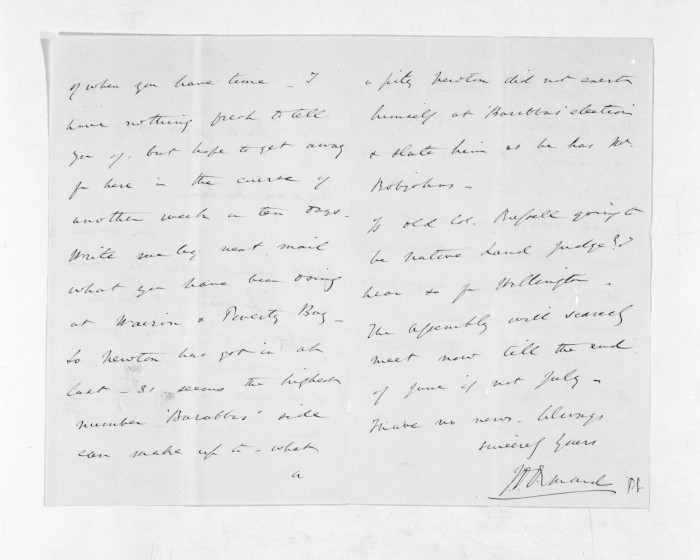 of when you have time - I
have nothing fresh to tell
you of, but hope to get away
fm here in the course of
another week or ten days.
Write me by next mail
what you have been doing
at Wairoa & Poverty Bay -
So Newton has got in at
last - 31 seems the highest
number 'Barabbas' side
can make up to - what
a
a pity Newton did not exert
himself at 'Barabbas' election
& slate him as he has Mr.
Bobjohns -
Is old Col. Russell going to
be Native Land Judge? I
hear so fm Wellington -
The Assembly will scarcely
meet now till the end
of June if not July -
I have no news. Always
sincerely yours
J.D. Ormond